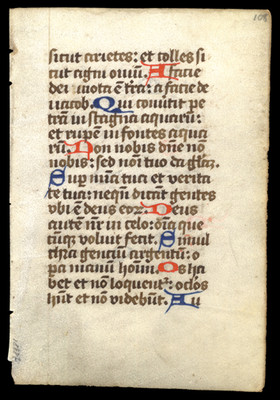 108
sicut arietes: et colles si
cut agni ouiu͂. A facie
dei mota e͂ t͂ra: a facie de
i iacob. Qui conuertit pe
tra͂ in stagna aquaru͂:
et rupe͂ in fontes aqua
ru͂. Non nobis dn͂e no͂
nobis: sed no͂i tuo da gl͂az.
Sup mi͂a tua et verita
te tua: nequ͂ dica͂t gentes
vbi e͂ deus eoz. Deus
aute͂ nr͂ in celo: oi͂a que
cu͂qz voluit fecit. Simul
chra gentiu͂ argentu͂: o
pa manuu͂ hoi͂m. Os ha
bet et no͂ loquent᷑: oclos
hn͂t et no͂ videbu͂t. Au